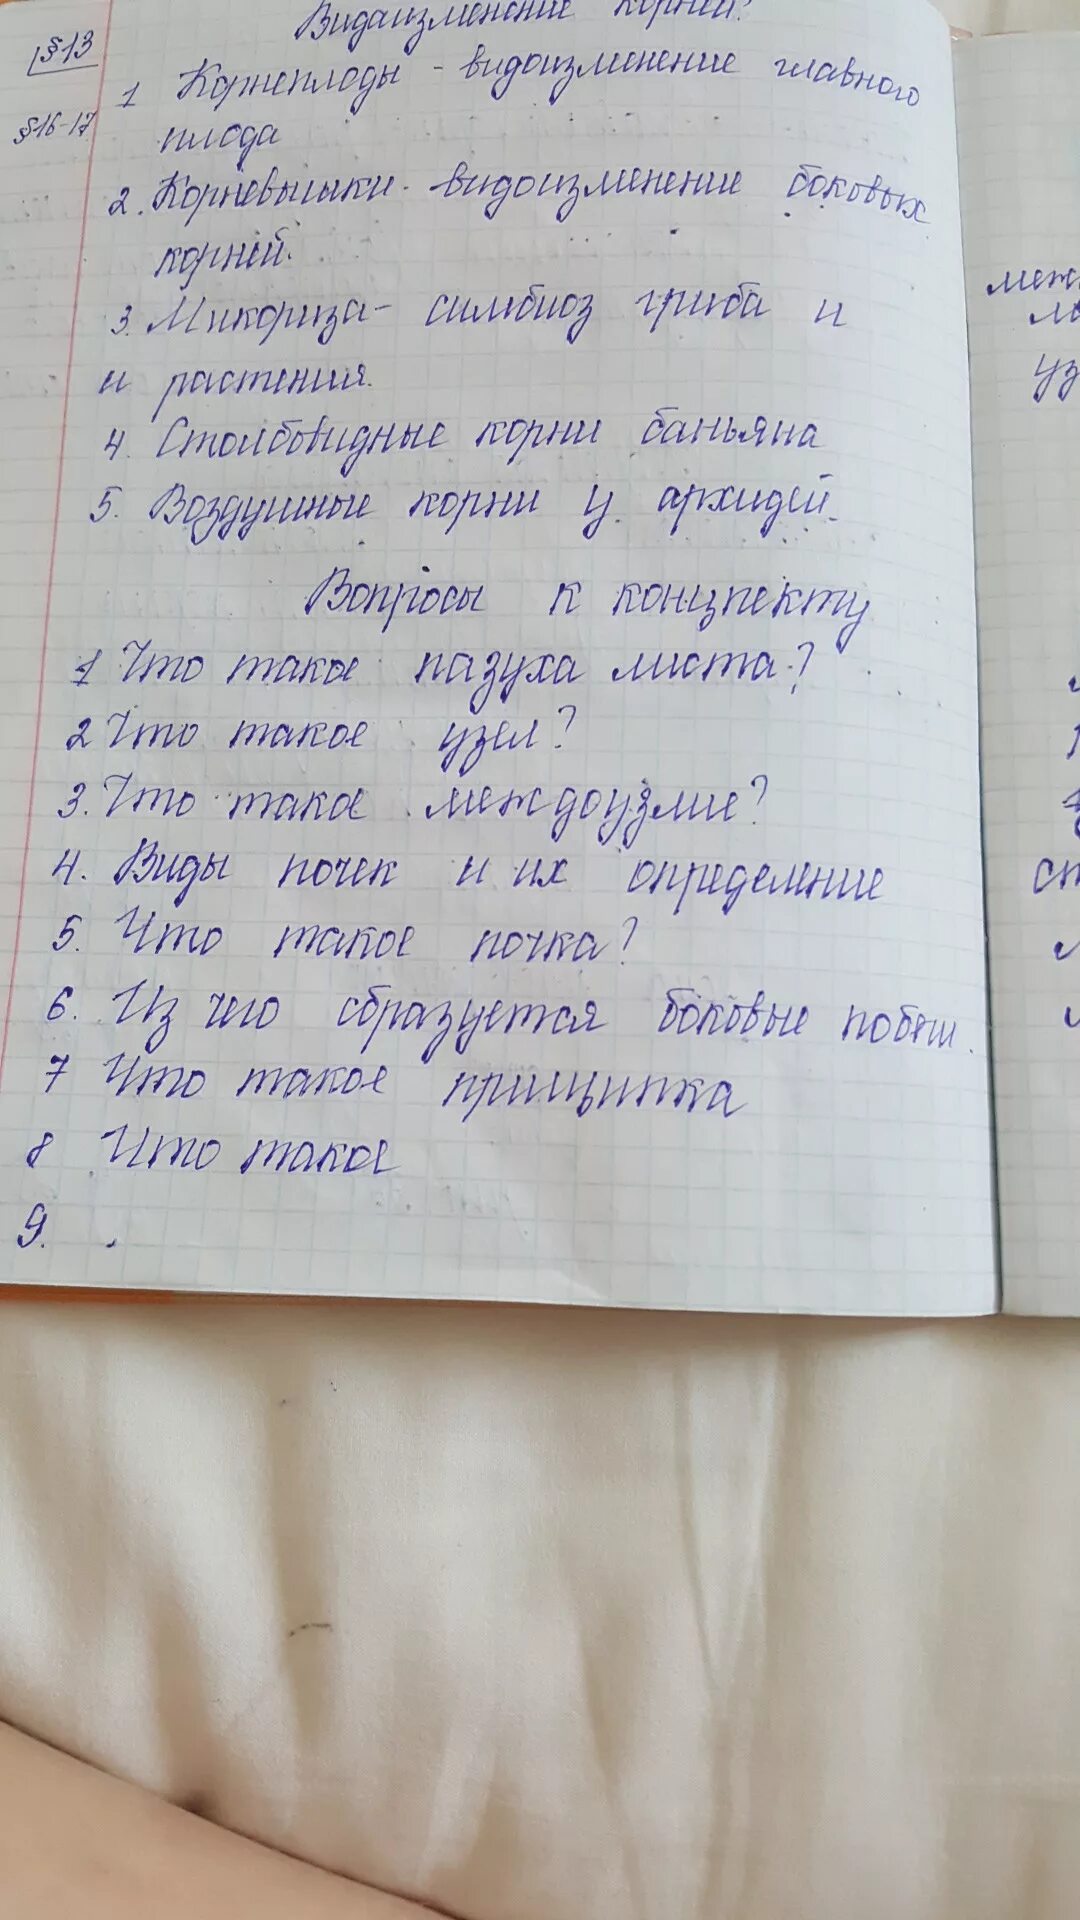 Видаизменение корней?
§13
1 Корнеплоды - видоизменение главного
§16-17
плода
2. Корневышки - видоизменение боковых
корней.
3. Микориза - симбиоз гриба и
и растения.
4. Столбовидные корни баньяна
5. Воздушные корни у архидей.
Вопросы к концпекту
1 Что такое пазуха листа?
2 Что такое узел?
3. Что такое междоузлие?
4. Виды почек и их определение
5. Что такое почка?
6. Из чего образуется боковые побеги.
7 Что такое прищипка
8 Что такое
9.
меж
уз
ст